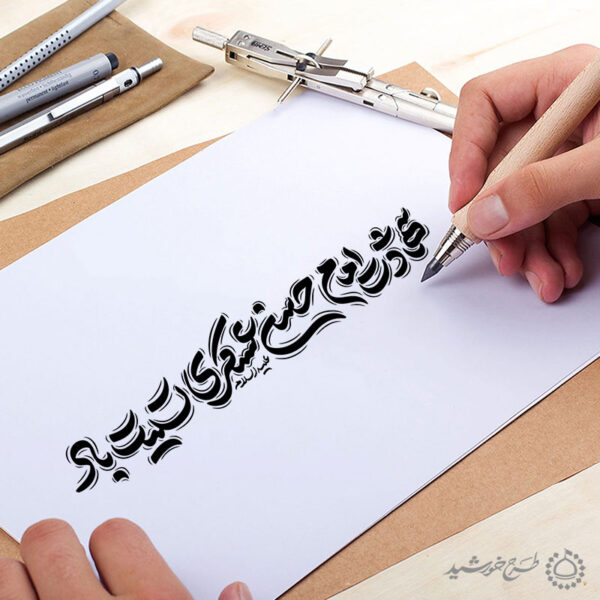 شهادت امام حسن عسکری تسلیت باد
علیه السلام
طرح خورشید